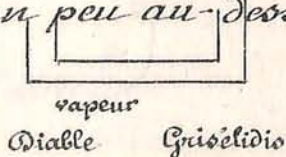 n peu au-des
vapeur
Diable Grisélidis